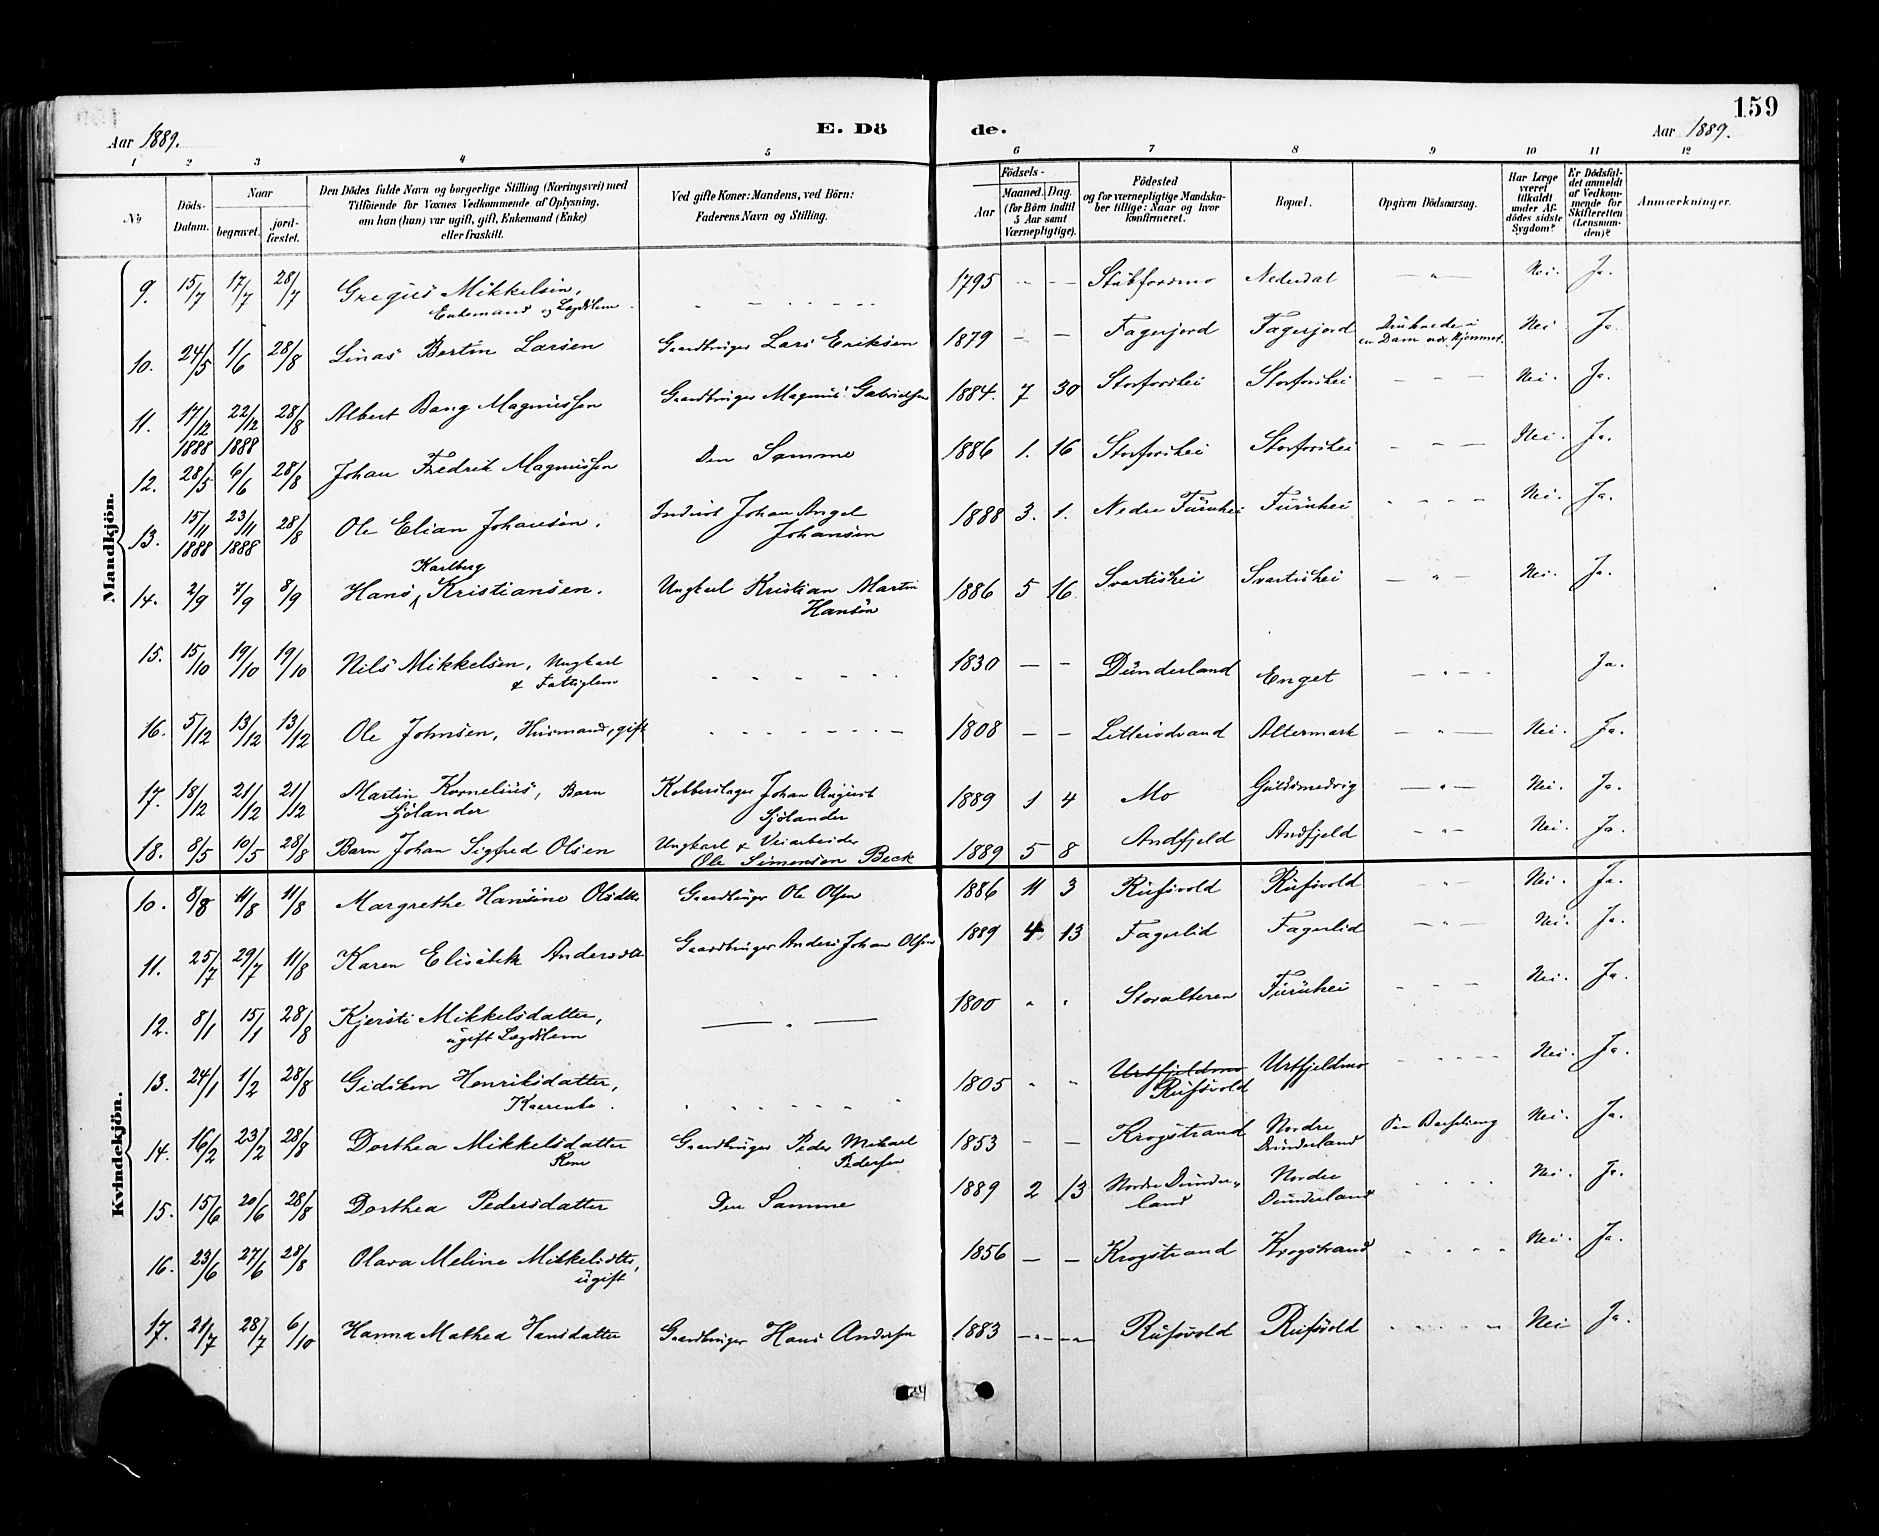 159
Aar 1889.
E. Döde.
Aar 1889.
1 2 3 4 5 6 7 8 9 10 11 12
No
Döds-Datum.
Naar
begravet.
jord-fæstet.
Den Dödes fulde Navn og borgerlige Stilling (Næringsvei) med
Tilföiende for Voxnes Vedkommende af Oplysning,
om han (hun) var ugift, gift, Enkemand (Enke)
eller fraskilt.
Ved gifte Koner: Mandens, ved Börn:
Faderens Navn og Stilling.
Födsels-
Aar
Maaned.
Dag.
(for Börn indtil
5 Aar samt
Værnepligtige).
Födested
og for værnepligtige Mandska-
ber tillige: Naar og hvor
konfirmeret.
Bopæl.
Opgiven Dödsaarsag.
Har Læge
været
tilkaldt
under Af-
dödes sidste
Sygdom?
Er Dödsfal-
det anmeldt
af Vedkom-
mende for
Skifteretten
(Lensman-
den)?
Anmærkninger.
Mandkjön.
9. 15/7 17/7 28/7 Gregus Mikkelsen, Enkemand og Lægdslem - 1795 - - Stubforsmo Nederdal - " - Nei. Ja.
10. 24/5 1/6 28/8 Linas Bertin Larsen Gaardbruger Lars Eriksen 1879 - - Fagerjord Fagerjord Druknede i en Dam ved Hjemmet. Nei Ja.
11. 17/12 1888 22/12 1888 28/8 Albert Bang Magnussen Gaardbruger Magnus Gabrielsen 1884. 7 30 Storforshei Storforshei - - - Nei. Ja.
12. 28/5 6/6 28/8 Johan Fredrik Magnussen Den Samme 1886 1. 16 Storforshei Storforshei - - - Nei. Ja.
13. 15/11 1888 23/11 1888 28/8 Ole Elian Johansen. Inderst Johan Angel Johansen 1888 3. 1. Nedre Furuhei Furuhei - - - - Nei. Ja.
14. 2/9 7/9 8/9 Hans Karlberg Kristiansen. Ungkarl Kristian Martin Hansen 1886 5 16 Svartishei Svartishei - " - Nei. Ja.
15. 15/10 19/10 19/10 Nils Mikkelsen, Ungkarl & Fattiglem - - - - - - 1830 - - Dunderland Enget - " - - Ja.
16. 5/12 13/12 13/12 Ole Johnsen, Husmand, gift - - - - - - 1808 - - Altermark - " - Nei. Ja.
17. 18/12 21/12 21/12 Martin Kornelius, Barn Sjölander Kobberslager Johan August Sjölander 1889 1 4 Mo Guldsmedvig - " - Nei. Ja.
18. 8/5 10/5 28/8 Barn Johan Sigfred Olsen Ungkarl & Veiarbeider Ole Simonsen Beck 1889 5 8 Andfjeld Andfjeld - " - Nei. Ja.
Kvindekjön.
10. 8/8 11/8 11/8 Margrethe Hansine Olsdtr Gaardbruger Ole Olsen 1886 11 3 Rufsvold Rufsvold - " - Nei. Ja.
11. 25/7 29/7 11/8 Karen Elisabeth Andersdtr Gaardbruger Anders Johan Olsen 1889 4 13 Fagerlid Fagerlid - " - Nei. Ja.
12. 8/1 15/1 28/8 Kjersti Mikkelsdatter, ugift Lægdslem - " - 1800 " " Storalteren Furuhei - - - Nei. Ja.
13. 24/1 1/2 28/8 Gidsken Henriksdatter, Kaarenke. - - - - - - 1805 " " Urtfjeldmo Rufsvold Urtfjeldmo - - - - - Nei. Ja.
14. 16/2 23/2 28/8 Dorthea Mikkelsdatter Kone Gaardbruger Peder Mikael Pedersen 1853 - - Krogstrand Nordre Dunderland Paa Barselseng Nei. Ja.
15. 15/6 20/6 28/8 Dorthea Pedersdatter Den Samme 1889 2 13 Nordre Dunderland Nordre Dunderland - - - - Nei. Ja.
16. 23/6 27/6 28/8 Olava Meline Mikkelsdtr, ugift 1856 - - Krogstrand Krogstrand - - - - Nei. Ja.
17. 21/7 28/7 6/10 Hanna Mathea Hansdatter Gaardbruger Hans Andersen 1883 - - - - Rufsvold Rufsvold - - - - - Nei Ja.